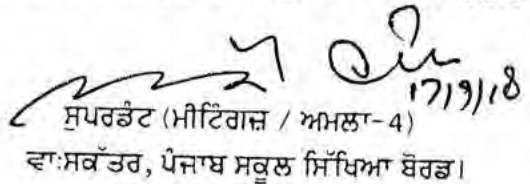 17/9/18
ਸੁਪਰਡੰਟ (ਮੀਟਿੰਗਜ਼ / ਅਮਲਾ-4)
ਵਾ:ਸਕੱਤਰ, ਪੰਜਾਬ ਸਕੂਲ ਸਿੱਖਿਆ ਬੋਰਡ।